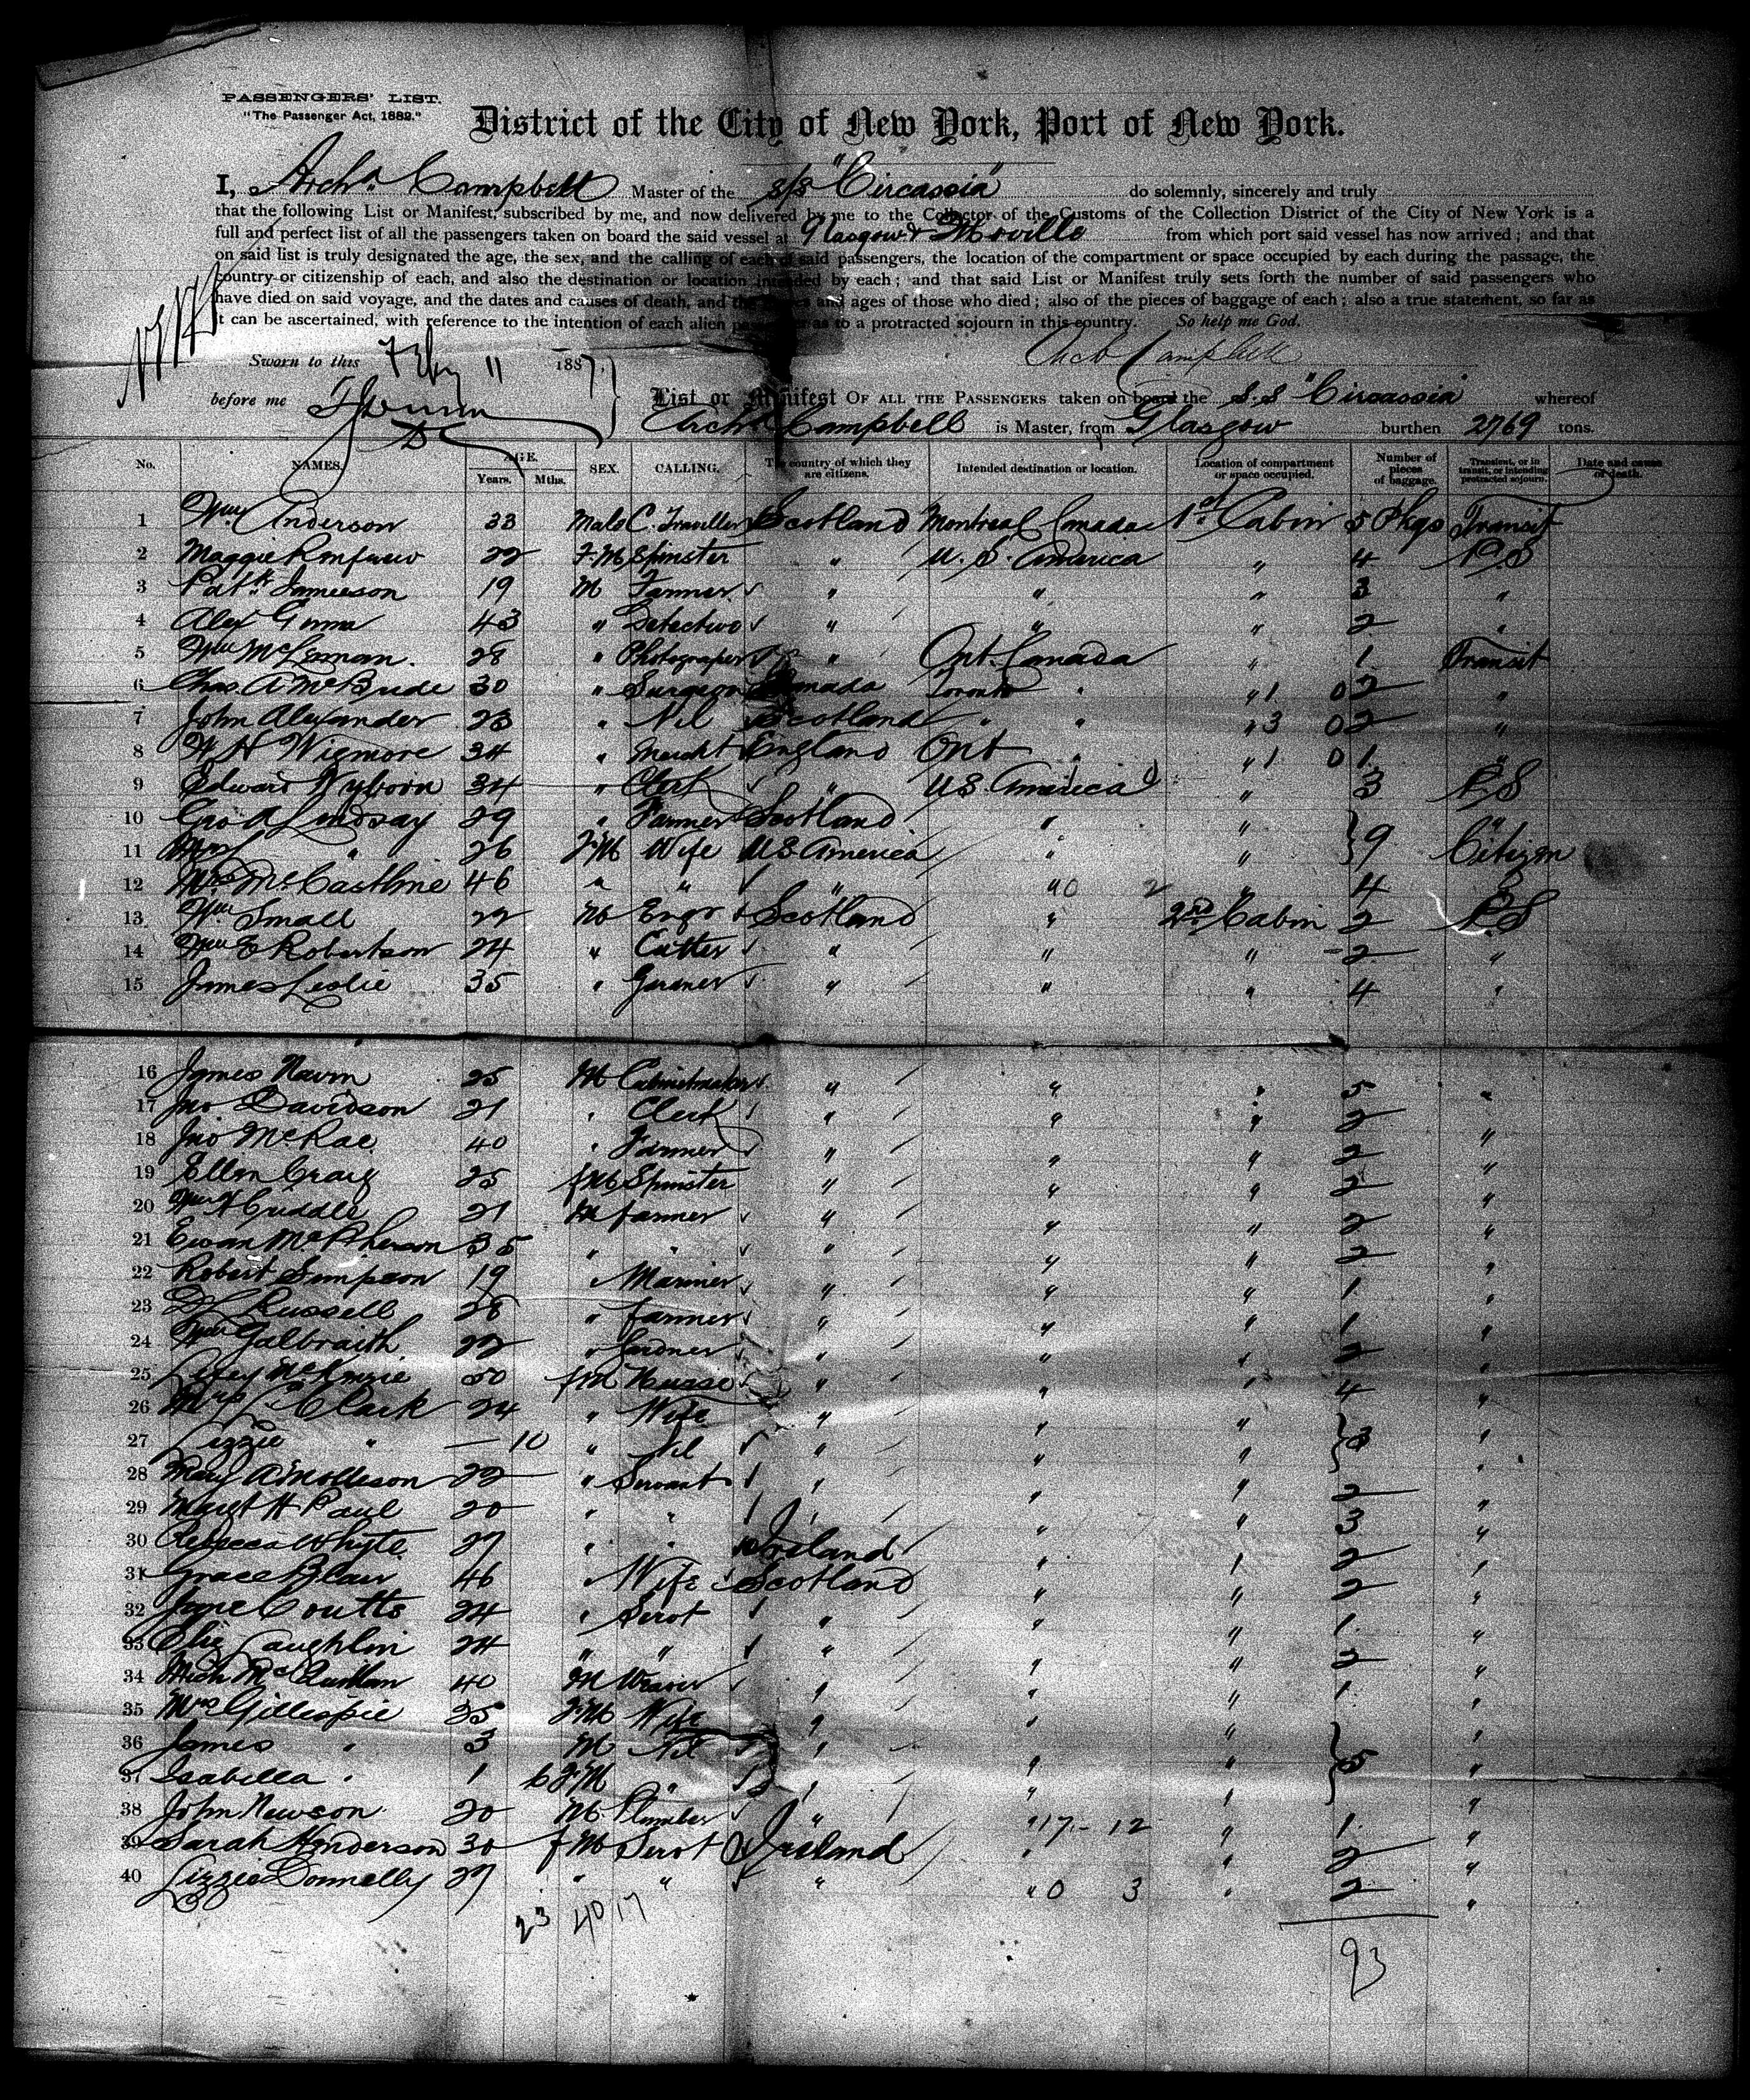 PASSENGERS' LIST.
"The Passenger Act, 1882."
District of the City of New York, Port of New York.
I, Archd Campbell Master of the s/s "Circassia" do solemnly, sincerely and truly
that the following List or Manifest, subscribed by me, and now delivered by me to the Collector of the Customs of the Collection District of the City of New York is a
full and perfect list of all the passengers taken on board the said vessel at Glasgow & Moville from which port said vessel has now arrived; and that
on said list is truly designated the age, the sex, and the calling of each of said passengers, the location of the compartment or space occupied by each during the passage, the
country or citizenship of each, and also the destination or location intended by each; and that said List or Manifest truly sets forth the number of said passengers who
have died on said voyage, and the dates and causes of death, and the names and ages of those who died; also of the pieces of baggage of each; also a true statement, so far as
it can be ascertained, with reference to the intention of each alien passenger as to a protracted sojourn in this country. So help me God.
Sworn to this Feby 11 1887. Arch Campbell
before me
List or Manifest OF ALL THE PASSENGERS taken on board the S.S "Circassia" whereof
Archd Campbell is Master, from Glasgow burthen 2769 tons.
No. NAMES. AGE. Years. Mths. SEX. CALLING. The country of which they are citizens. Intended destination or location. Location of compartment or space occupied. Number of pieces of baggage. Transient, or in transit, or intending protracted sojourn. Date and cause of death.
1 Wm Anderson 33 Male C. Traveller Scotland Montreal Canada 1st Cabin 5 Pkgs Transit
2 Maggie Renfrew 22 F.M Spinster " U.S. America " 4 P.S
3 Patk Jamieson 19 M Farmer " " " 3 "
4 Alex Gunn 43 " Detective " " " 2 "
5 Wm McLennan 28 " Photograper " Ont. Canada " 1 Transit
6 Chas. A McBride 30 " Surgeon Canada Toronto " " 1 0 2 "
7 John Alexander 23 " Nil Scotland " " " 3 0 2 "
8 W H Wigmore 34 " Mercht England Ont " 1 0 1 "
9 Edward Wyborn 34 " Clerk " U.S. America " 3 P.S
10 Geo A Lindsay 29 " Farmer Scotland " " } 9 "
11 Mrs " 26 F.M Wife U.S America " " Citizen
12 Mrs McCasthne 46 " " " " 0 2 " 4 "
13 Wm Small 22 M Engr Scotland " 2nd Cabin 2 P.S
14 Wm E Robertson 24 " Cutter " " " 2 "
15 James Leslie 35 " Gardner " " " 4 "
16 James Navin 25 M Cabinetmaker " " " 5 "
17 Jno Davidson 21 " Clerk " " " 2 "
18 Jno McRae 40 " Farmer " " " 2 "
19 Ellen Craig 25 f M Spinster " " " 2 "
20 Wm H Cuddle 21 M farmer " " " 2 "
21 Ewan McPherson 35 " " " " " 2 "
22 Robert Simpson 19 " Mariner " " " 1 "
23 D L Russell 28 " farmer " " " 1 "
24 Wm Galbraith 22 " Gardner " " " 2 "
25 McKenzie 50 f M Nurse " " " 4 "
26 Mrs Clark 24 " Wife " " " } 3 "
27 Lizzie " — 10 " Nil " " " "
28 Mary A Molleson 22 " Servant " " " 2 "
29 Margt H Paul 20 " " " " " 3 "
30 Rebecca Whyte 27 " " Ireland " " 2 "
31 Grace Blair 46 " Wife Scotland " " 2 "
32 Jane Coutts 24 " Servt " " " 1 "
33 Laughlin 24 " " " " " 2 "
34 Mich McQuillan 40 M Weaver " " " 1 "
35 Mrs Gillespie 35 F.M Wife " " " } 5 "
36 James " 3 M Nil " " " "
37 Isabella " 1 6 F.M " " " " "
38 John Newson 20 M. Plumber " " 17 - 12 " 1 "
39 Sarah Henderson 30 f M Servt Ireland " " 2 "
40 Lizzie Donnelly 27 " " " " 0 3 " 2 "
23 40 17
93